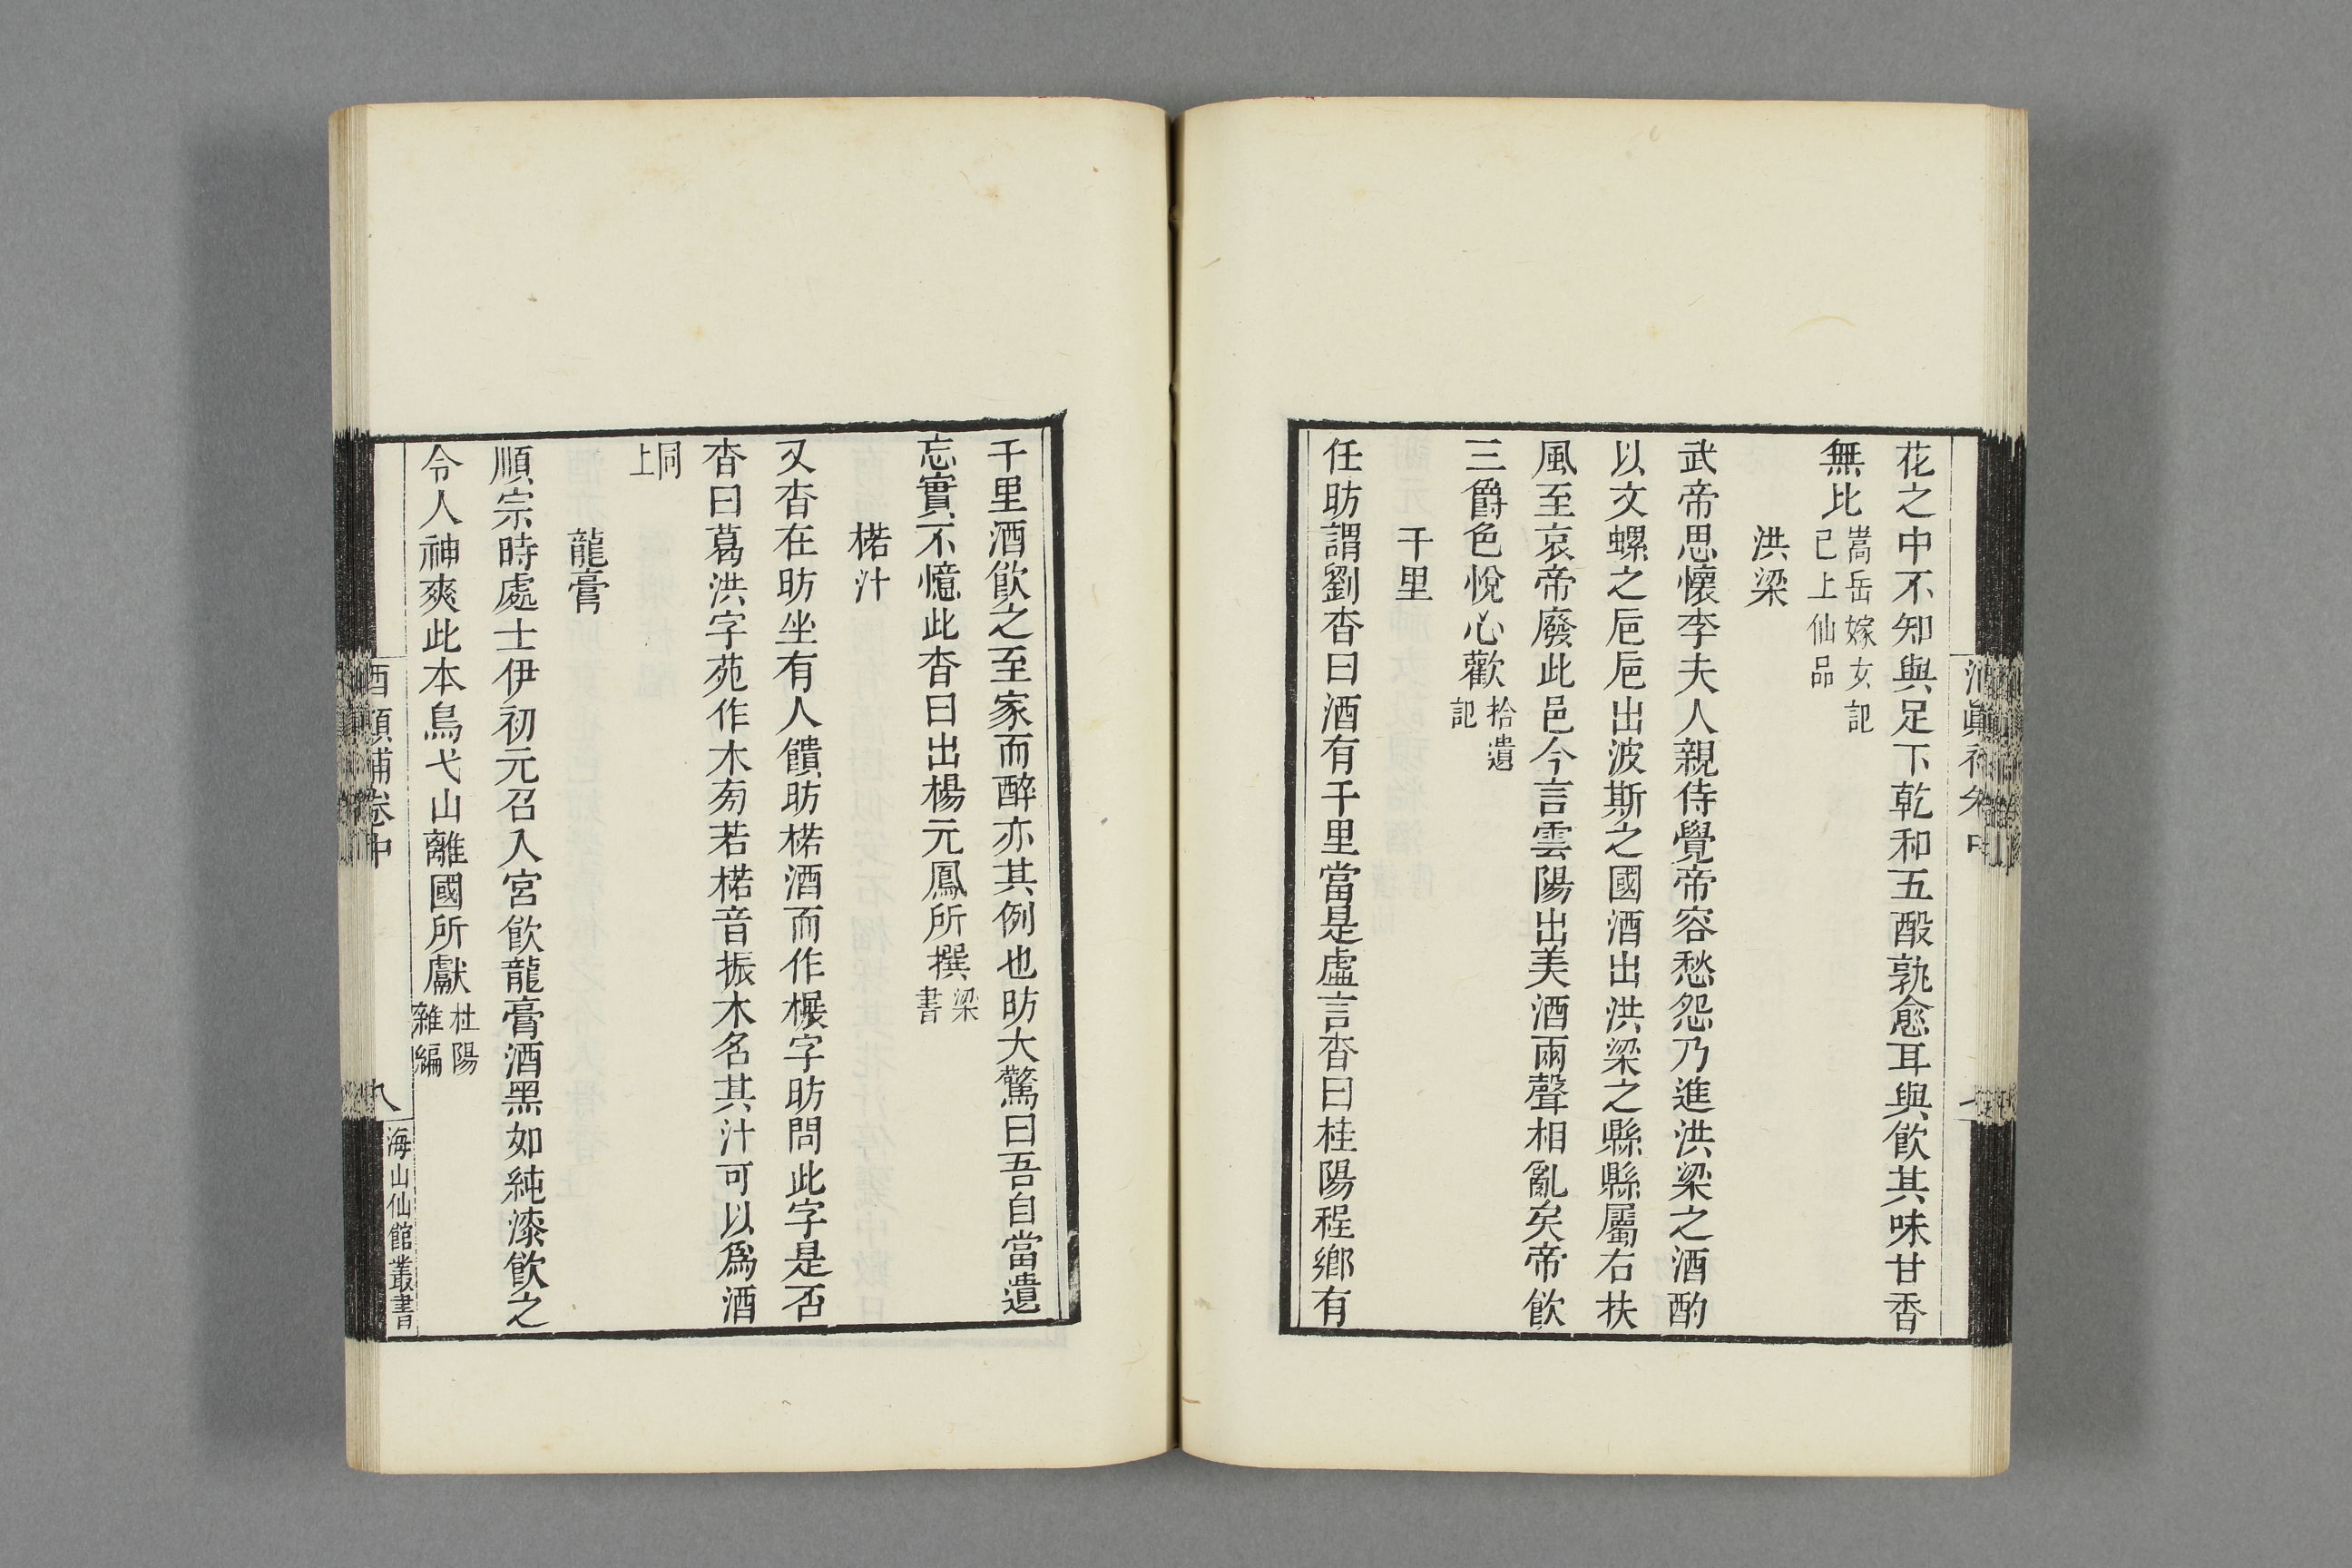 花之中不知與足下乾和五酘孰愈耳與飲其味甘香
無比嵩岳嫁女記已上仙品
洪梁
武帝思懷李夫人親侍覺帝容愁怨乃進洪梁之酒酌
以文螺之巵巵出波斯之國酒出洪梁之縣縣屬右扶
風至哀帝廢此邑今言雲陽出美酒兩聲相亂矣帝飲
三爵色悅心歡拾遺記
千里
任昉謂劉杳曰酒有千里當是虛言杳曰桂陽程鄉有
千里酒飲之至家而醉亦其例也昉大驚曰吾自當遺
忘實不憶此杳曰出楊元鳳所撰梁書
楉汁
又杳在昉坐有人饋昉楉酒而作榐字昉問此字是否
杳曰葛洪字苑作木旁若楉音振木名其汁可以爲酒
同上
龍膏
順宗時處士伊初元召入宮飲龍膏酒黑如純漆飲之
令人神爽此本烏弋山離國所獻杜陽雜編
卷中
八
海山仙館叢書